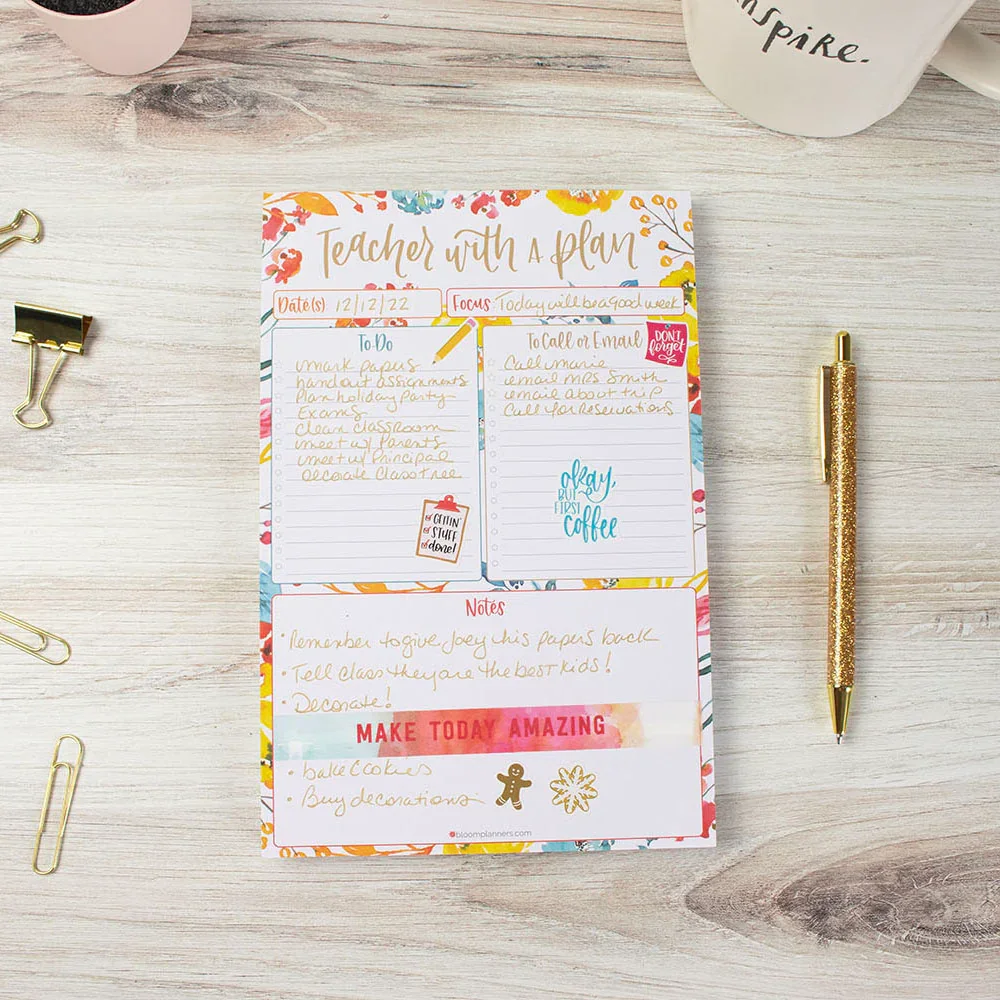 inspire.
Teacher with a plan
Date(s): 12/12/22
Focus: Today will be a good week
To-Do
mark papers
handout assignments
Plan holiday party
Exams
clean classroom
meet w/ Parents
meet w/ Principal
Decorate Class Tree
GETTIN'
STUFF
done!
To Call or Email
DON'T
forget
Call Marie
email MRS Smith
email about trip
Call for Reservations
okay,
BUT
FIRST
coffee
Notes
• Remember to give Joey his papers back
• Tell class they are the best kids!
• Decorate!
MAKE TODAY AMAZING
• bake Cookies
• Buy decorations
bloomplanners.com